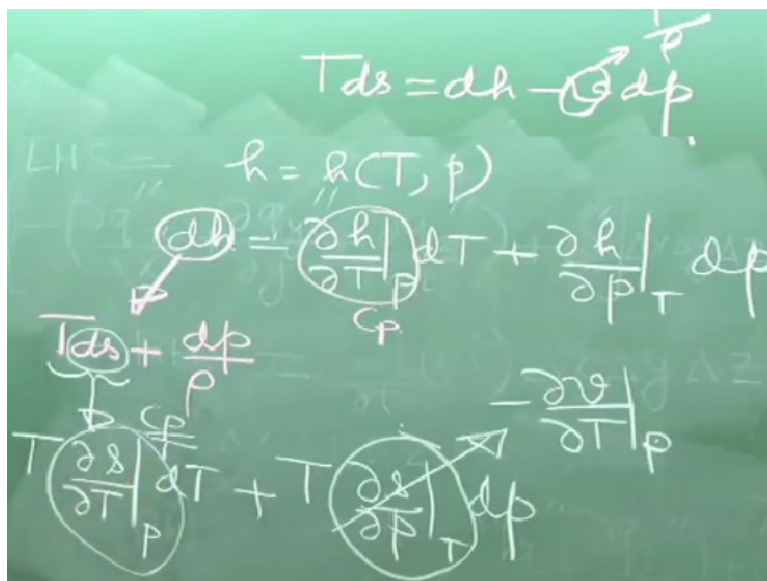 1/ρ
Tds = dh - v dp
LHS =
h = h(T, p)
dh = ∂h/∂T|p dT + ∂h/∂p|T dp
Cp
Tds + dp/ρ
Cp
-∂v/∂T|p
T ∂s/∂T|p dT + T ∂s/∂p|T dp